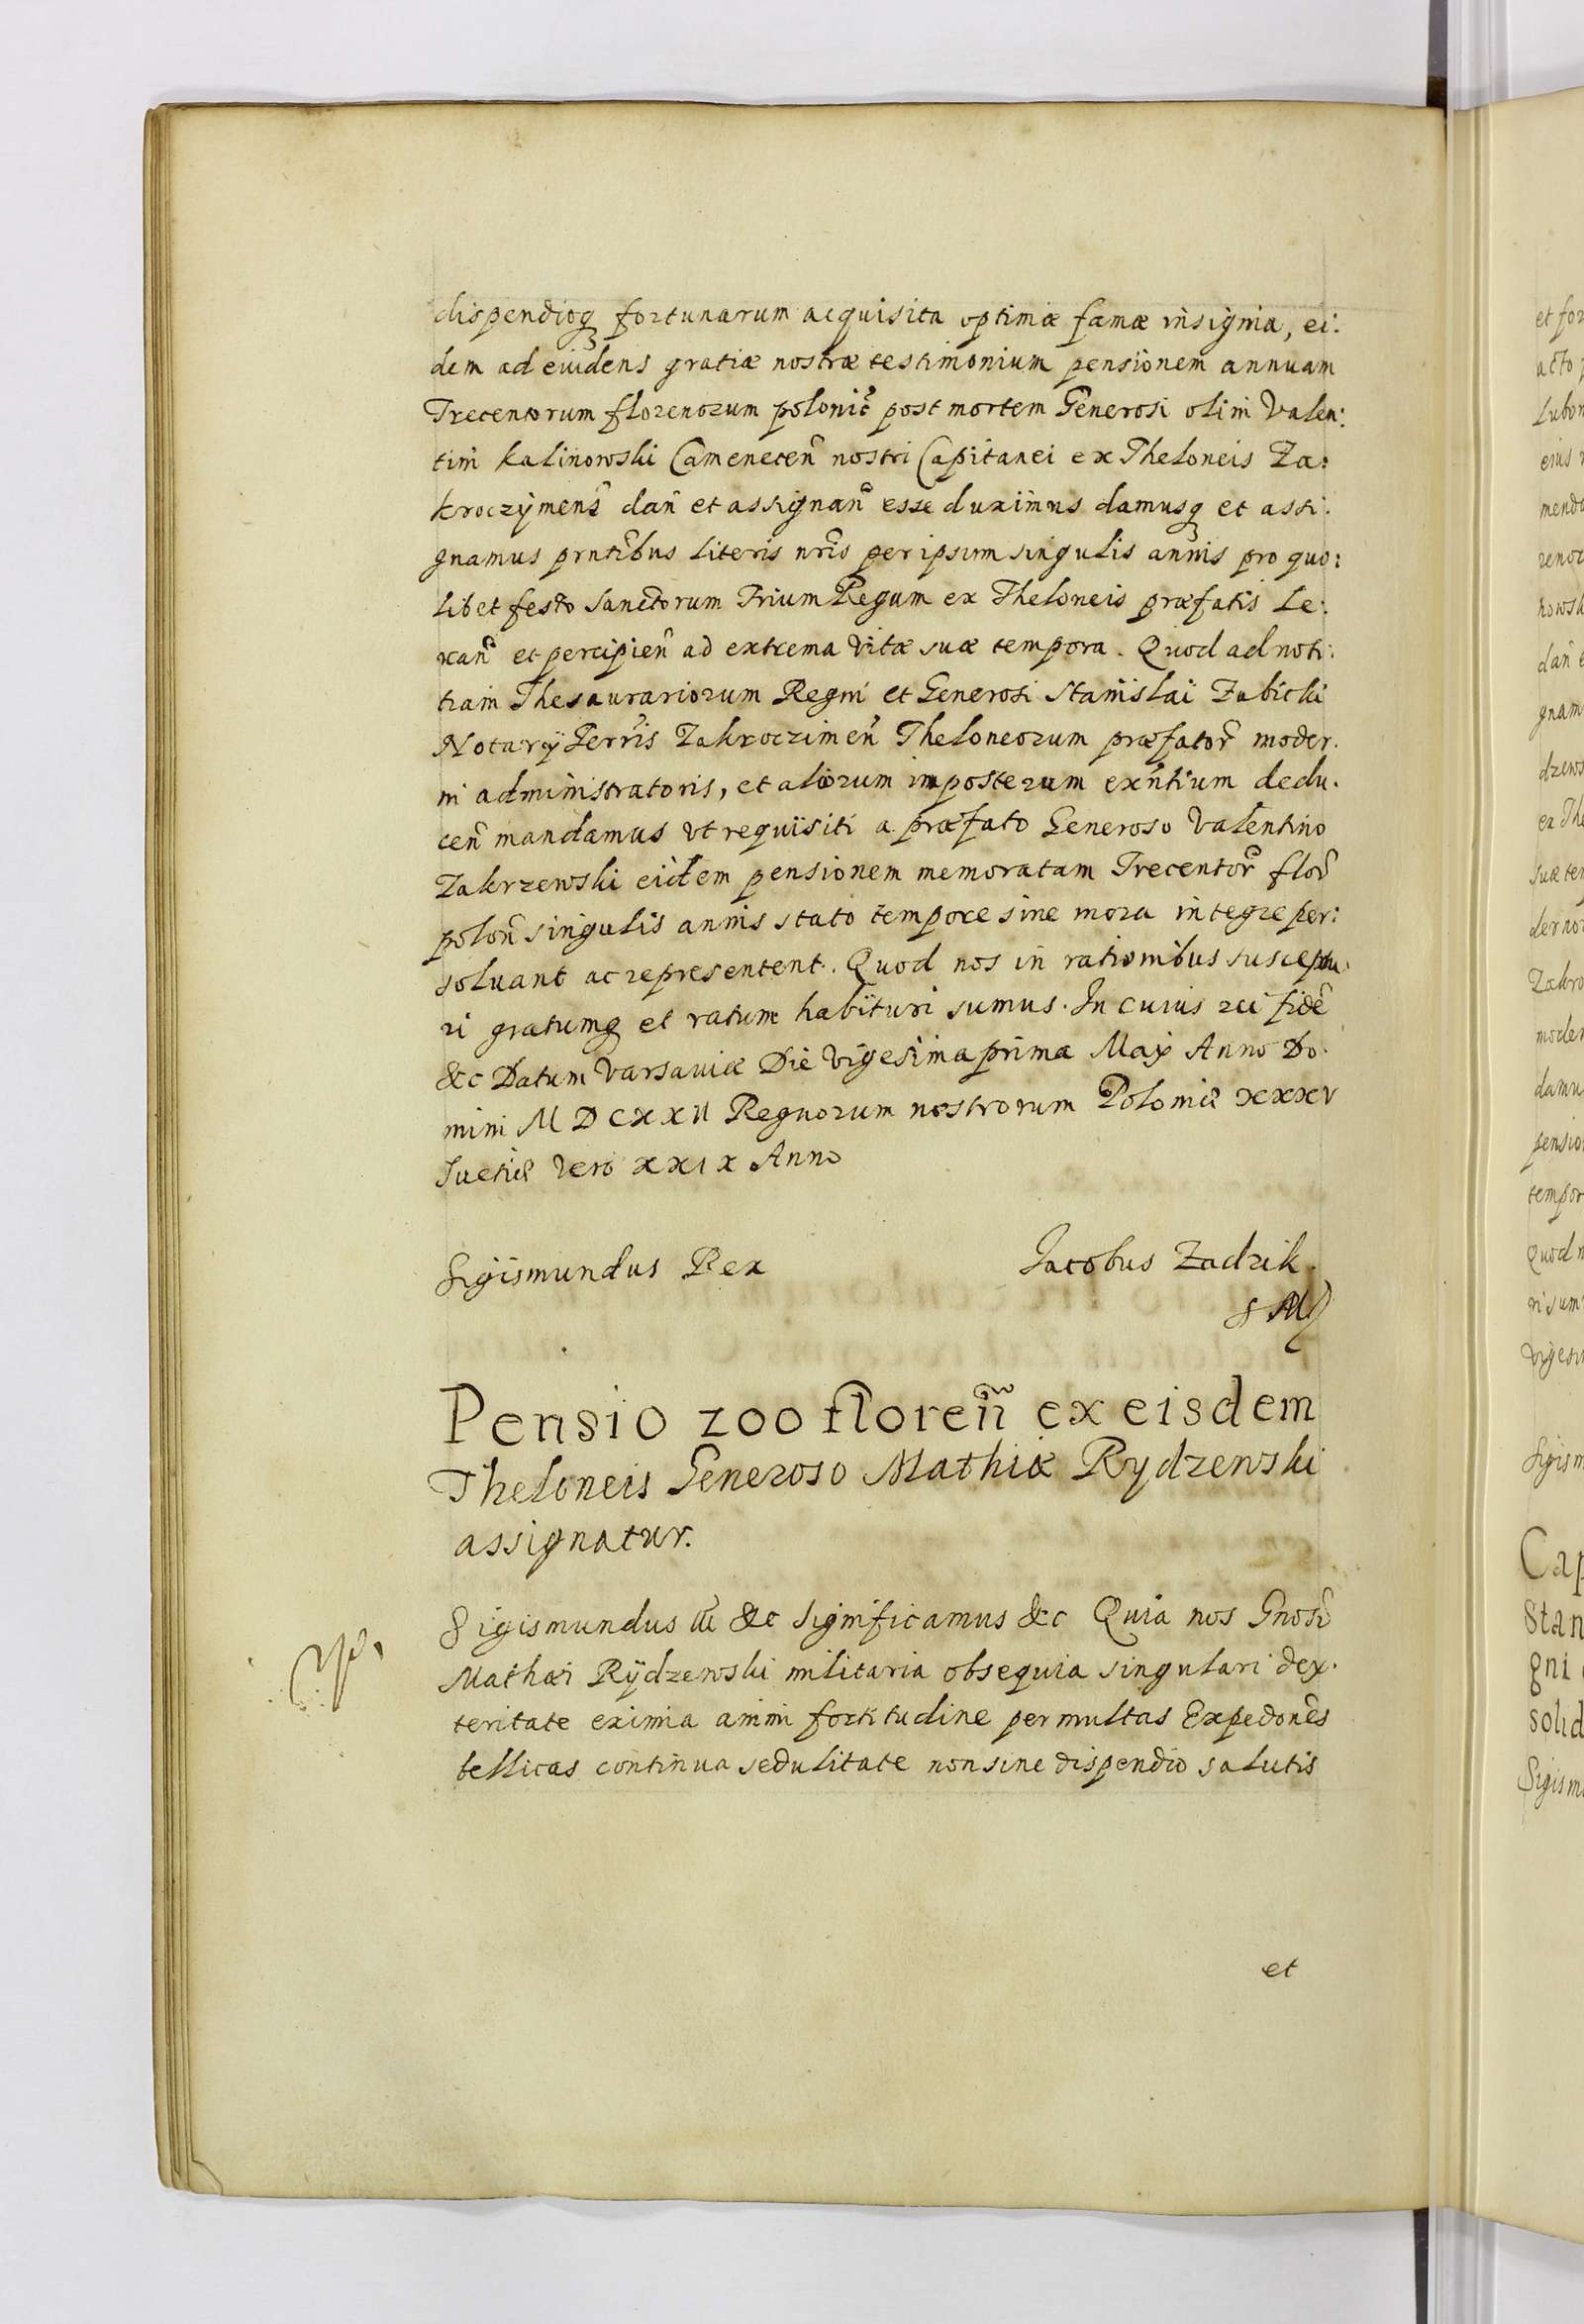 dispendioq fortunarum acquisita optimæ famæ insignia, ei:
dem ad euidens gratiæ nostræ testimonium pensionem annuam
Trecentorum florenorum polonic̃ post mortem Generosi olim Valen:
tini Kalinowski Camenecen̄ nostri Capitanei ex Theloneis Za:
kroczÿmens̃ dan̄ et assignan̄ esse duximus damusq et assi:
gnamus prntibus literis nr̄is per ipsum singulis annis pro quo:
libet festo Sanctorum Trium Regum ex Theloneis præfatis Le:
uan̄ et percipien̄ ad extrema vitæ suæ tempora. Quod ad noti:
tiam Thesaurariorum Regni et Generosi Stanislai Zabicki
Notarÿ Terr̄is Zakroczimen̄ Theloneorum præfator̄ moder:
ni administratoris, et aliorum imposterum exn̄tium dedu:
cen̄ mandamus vt requisiti a præfato Generoso Valentino
Zakrzewski eidem pensionem memoratam Trecentor̄ flor̄
polon̄ singulis annis stato tempore sine mora integre per:
soluant ac representent. Quod nos in rationibus susceptu:
ri gratumq et ratum habituri sumus. In cuius rei fidē
&c Datum Varsauiæ Die Vigesima prima Maÿ Anno Do:
mini M D C X X II Regnorum nostrorum Poloniæ XXXV
Suetiæ vero XXIX Anno
Sigismundus Rex
Jacobus Zadzik.
S M
Pensio 200 floren̄ ex eisdem
Theloneis Generoso Mathiæ Rydzewski
assignatur.
Sigismundus III &c Significamus &c Quia nos Gnosi
Mathæi Rÿdzewski militaria obsequia singulari dex:
teritate eximia animi fortitudine per multas Expedon̄es
bellicas continua sedulitate non sine dispendio salutis
et